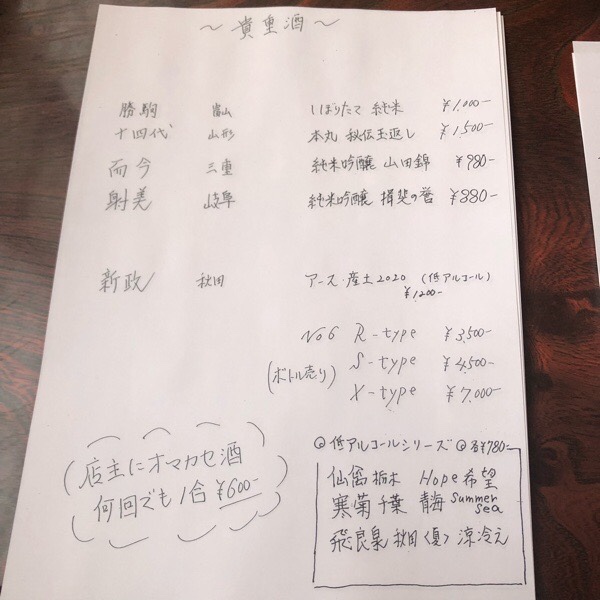 ～貴重酒～
勝駒 富山 しぼりたて 純米 ¥1,000-
十四代 山形 本丸 秘伝玉返し ¥1,500-
而今 三重 純米吟醸 山田錦 ¥980-
射美 岐阜 純米吟醸 揖斐の誉 ¥880-
新政 秋田 アース・産土2020 (低アルコール)
¥1,200-
No6 R-type ¥3,500-
(ボトル売り) S-type ¥4,500-
X-type ¥7,000-
店主にオマカセ酒
何回でも1合 ¥600-
◎低アルコールシリーズ◎各¥780-
仙禽 栃木 Hope 希望
寒菊 千葉 青海 Summer sea
飛良泉 秋田 〈夏〉 涼冷え